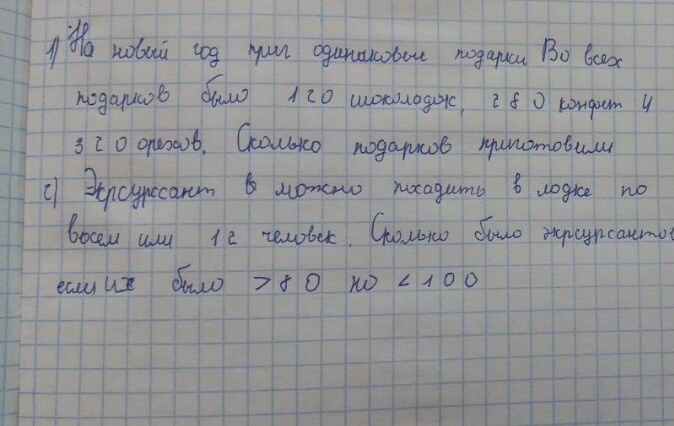 1) На новый год приг одинаковые подарки Во всех
подарков было 120 шоколадок, 280 конфет и
320 орехов. Сколько подарков приготовили
2) Экрсурссант в можно посадить в лодке по
восем или 12 человек. Сколько было экрсурсантов
если их было >80 но <100